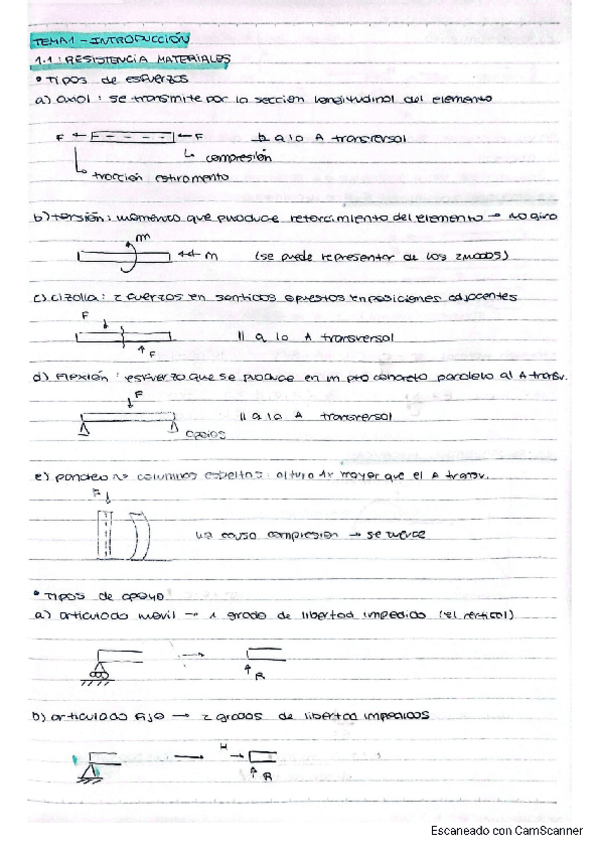 TEMA 1 - INTRODUCCIÓN
1.1: RESISTENCIA MATERIALES
• Tipos de esfuerzos
a) axial: se transmite por la sección longitudinal del elemento
F ← → F a la A transversal
compresión
tracción estiramento
b) torsión: momento que produce retorcimiento del elemento → no giro
m
m (se puede representar de los 2 modos)
c) cizalla: 2 fuerzas en sentidos opuestos en posiciones adjacentes
F
|| a la A transversal
F
d) Flexión: esfuerzo que se produce en un pto concreto paralelo al A transv.
F
|| a la A transversal
apoios
e) pandeo columnas esbeltas: altura mayor que el A transv.
F
causa compresión → se tuerce
• Tipos de apoyo
a) articulado móvil → 1 grado de libertad impedido (el vertical)
→ R
b) articulado fijo → 2 grados de libertad impedidos
→ H
R
Escaneado con CamScanner